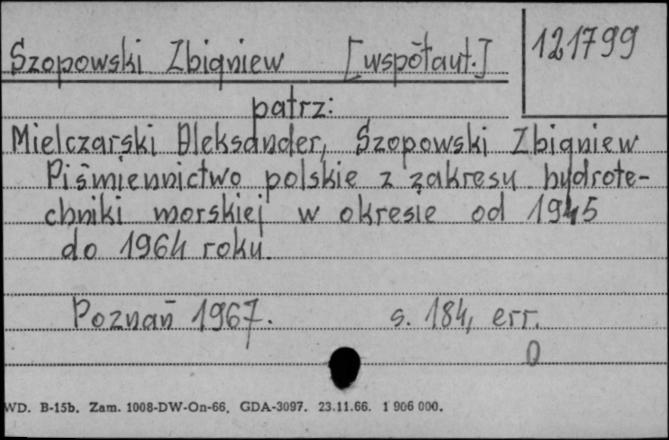 Szopowski Zbigniew [współaut.] 121799
patrz:
Mielczarski Aleksander, Szopowski Zbigniew
Piśmiennictwo polskie z zakresu hydrote-
chniki morskiej w okresie od 1945
do 1964 roku.
Poznań 1967. s. 184, err.
0
WD. B-15b. Zam. 1008-DW-On-66. GDA-3097. 23.11.66. 1 906 000.